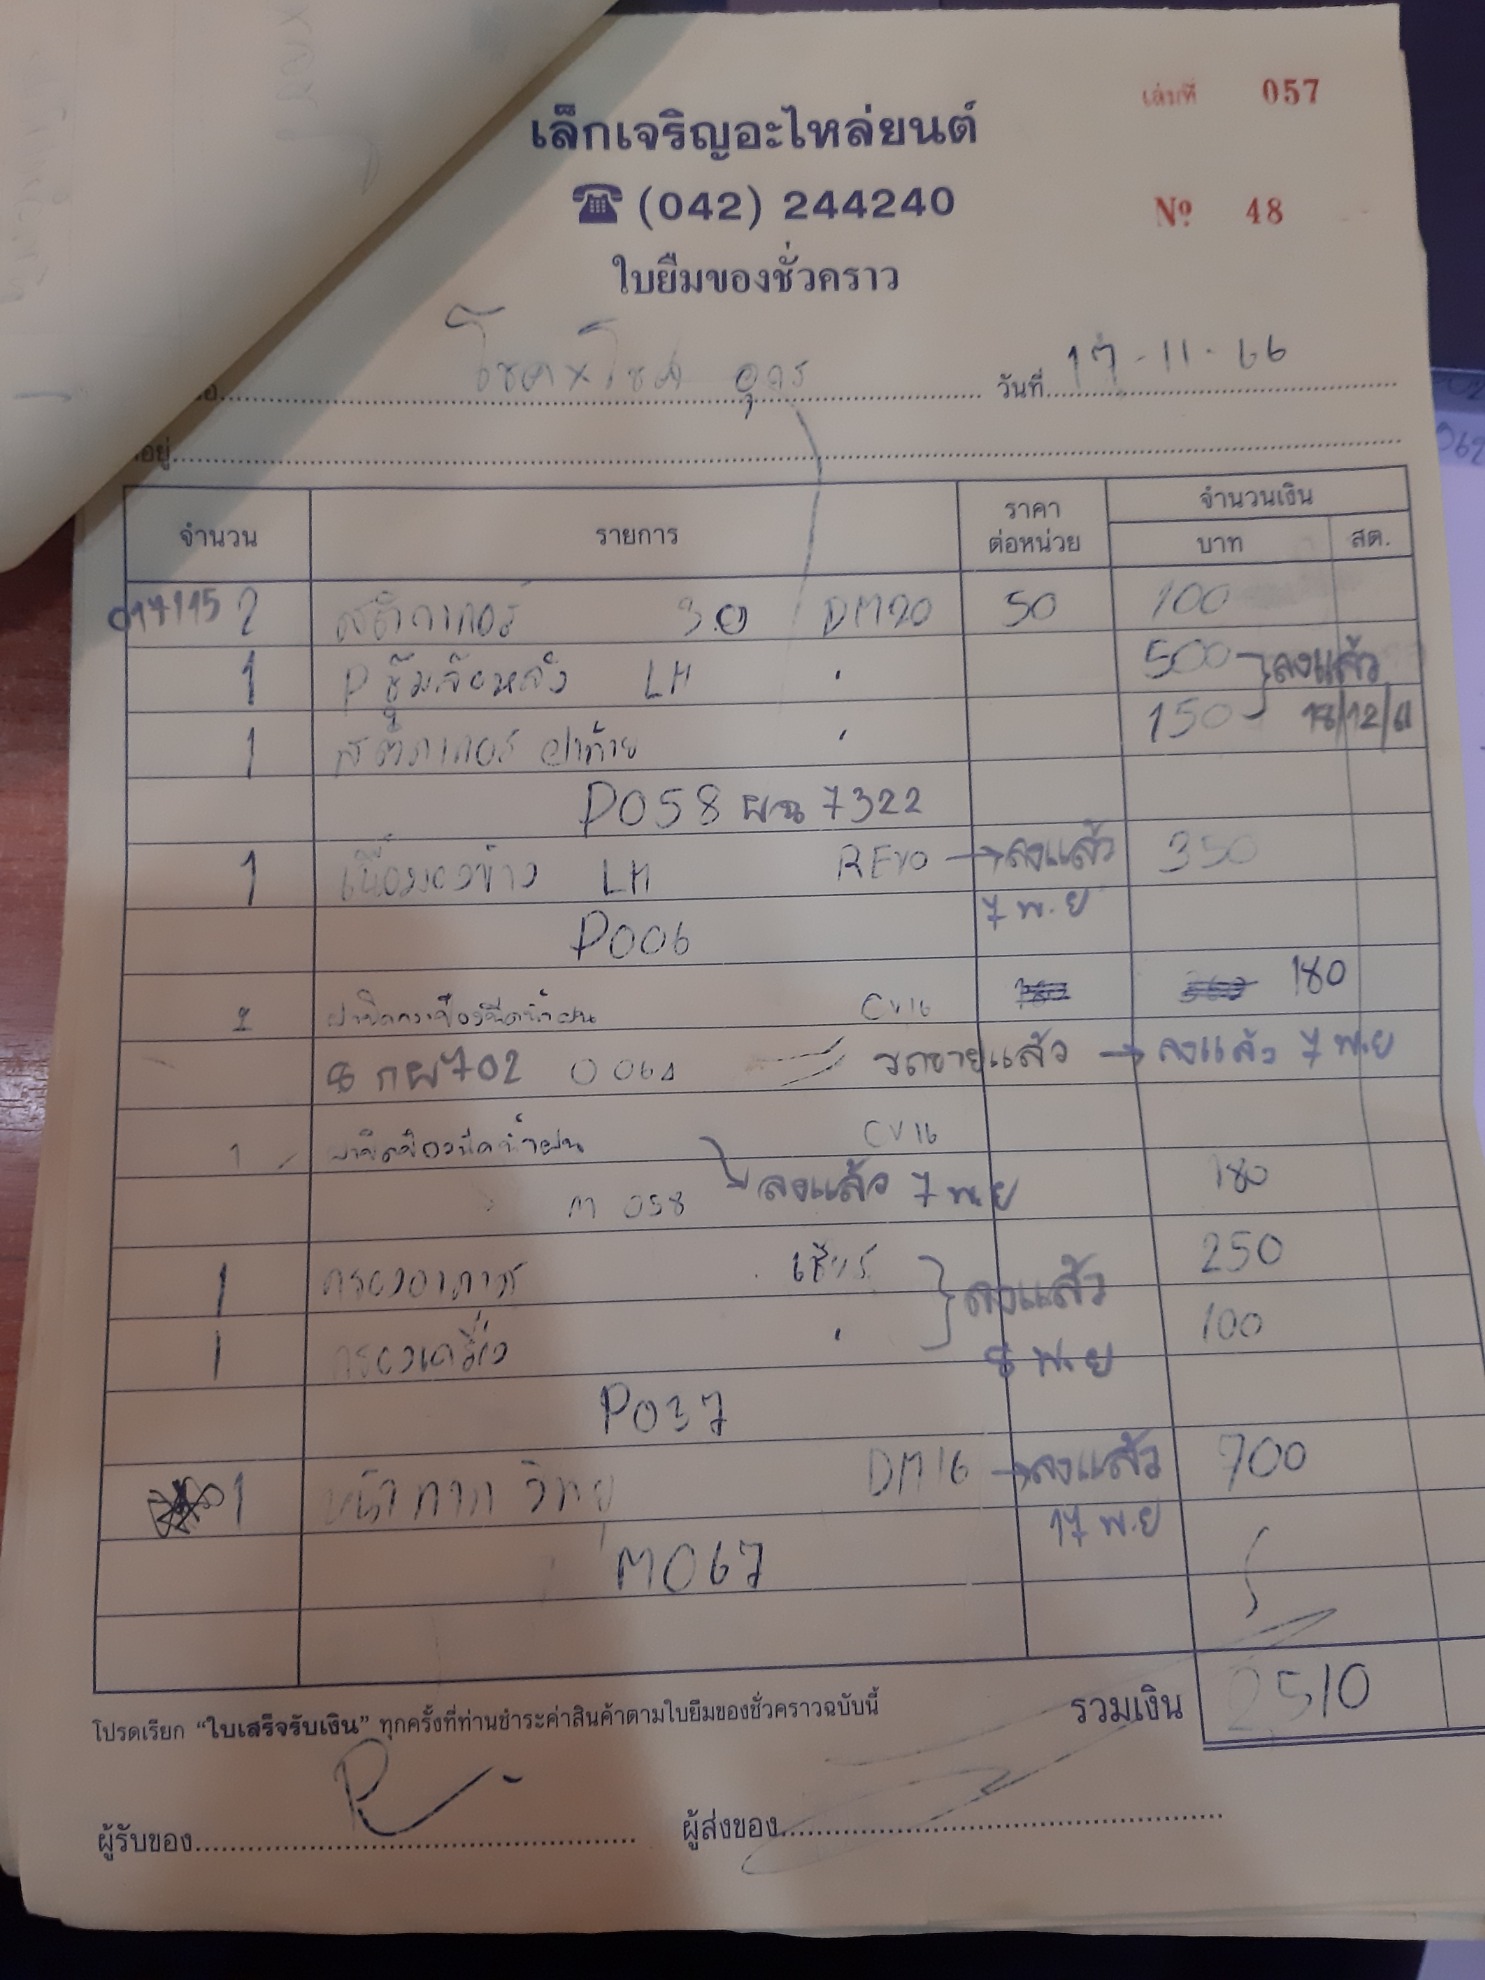 เล่มที่ 057
เล็กเจริญอะไหล่ยนต์
☎ (042) 244240
Nº 48
ใบยืมของชั่วคราว
โชค x โชค อุดร วันที่ 17-11-66
อยู่
จำนวน รายการ ราคาต่อหน่วย จำนวนเงิน
บาท สต.
017115 2 สติกเกอร์ 3.0 DM20 50 100
1 P ซุ้มล้อหลัง LH " 500 ลงแล้ว
1 สติกเกอร์ ฝาท้าย " 150 18/12/
P058 ผฉ 7322
1 LH REVO → ลงแล้ว 350
P006 7 พ.ย
ฉีดน้ำฝน CV16 180
702 รถขายแล้ว → ลงแล้ว 7 พ.ย
1 ฉีดน้ำฝน CV16
M 058 ลงแล้ว 7 พ.ย 180
1 กรองอากาศ เชียร์ 250
1 กรองเครื่อง " ลงแล้ว 100
8 พ.ย
P037
1 หน้ากาก วิทยุ DM16 → ลงแล้ว 700
M067 17 พ.ย
โปรดเรียก “ใบเสร็จรับเงิน” ทุกครั้งที่ท่านชำระค่าสินค้าตามใบยืมของชั่วคราวฉบับนี้ รวมเงิน 2510
ผู้รับของ ผู้ส่งของ